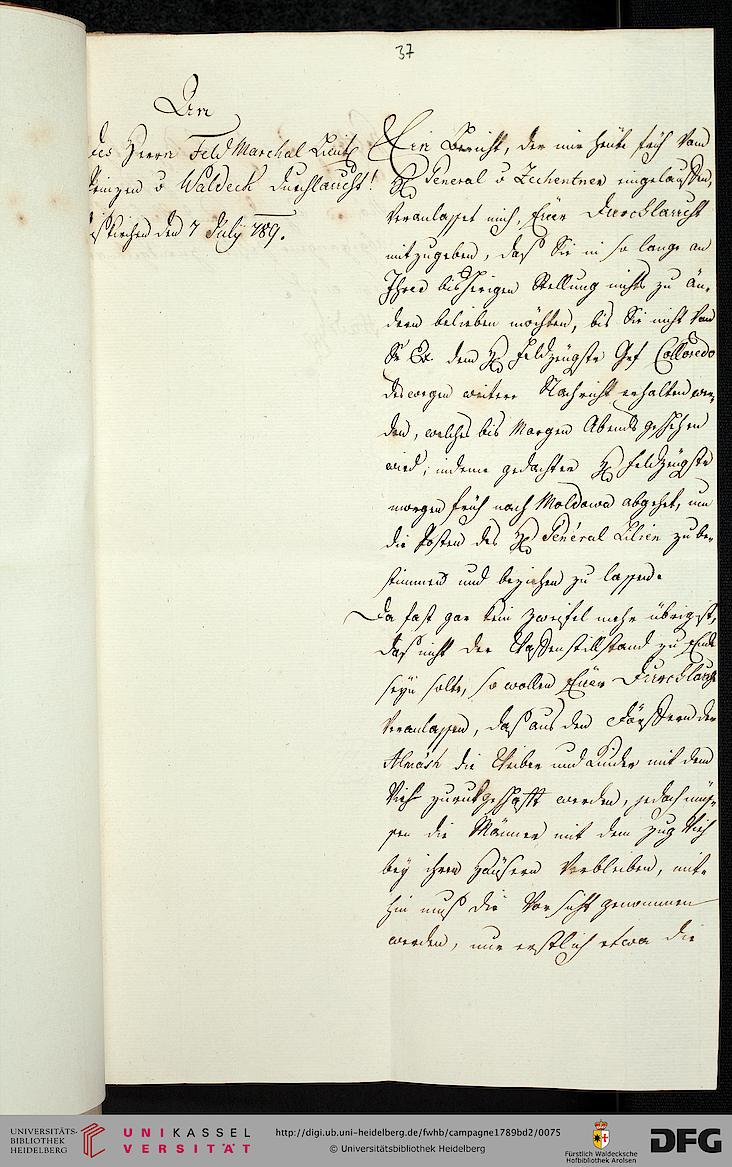 37
An
des Herrn Feld Marchal Lieut
Prinzen v Waldeck Durchlaucht!
den 7 July 789.
Ein Bericht, der mir heute früh vom
H General v Zechentner eingelauffen,
Veranlasset mich, Euer Durchlaucht
mitzugeben, daß Sie in so lange an
Ihrer bisherigen Stellung nichts zu än-
dern belieben möchten, bis Sie nicht von
Sr Ex. dem H Feldzeugstr Grf Colloredo
deswegen weitere Nachricht erhalten wer-
den, welches bis Morgen Abends geschehen
wird, indeme gedachter H Feldzeugstr
morgen früh nach Moldawa abgehet, um
die Posten des H Général Lilien zu be-
stimmen und beziehen zu lassen.
Da fast gar kein Zweifel mehr übrig ist,
daß nicht der Waffenstillstand zu Ende
seyn solte, so wollen Euer Durchlaucht
Veranlassen, daß aus den Dörffern der
Almásh die Weiber und Kinder mit dem
Vieh zurukgeschafft werden, jedoch müs-
sen die Männer mit dem Zug Vieh
bey ihren Häusern Verbleiben, mit-
hin muß die Vorsicht genommen
werden, nur erstlich etwa die
UNIVERSITÄTS-
BIBLIOTHEK
HEIDELBERG
UNIKASSEL
VERSITÄT
http://digi.ub.uni-heidelberg.de/fwhb/campagne1789bd2/0075
© Universitätsbibliothek Heidelberg
Fürstlich Waldecksche
Hofbibliothek Arolsen
DFG